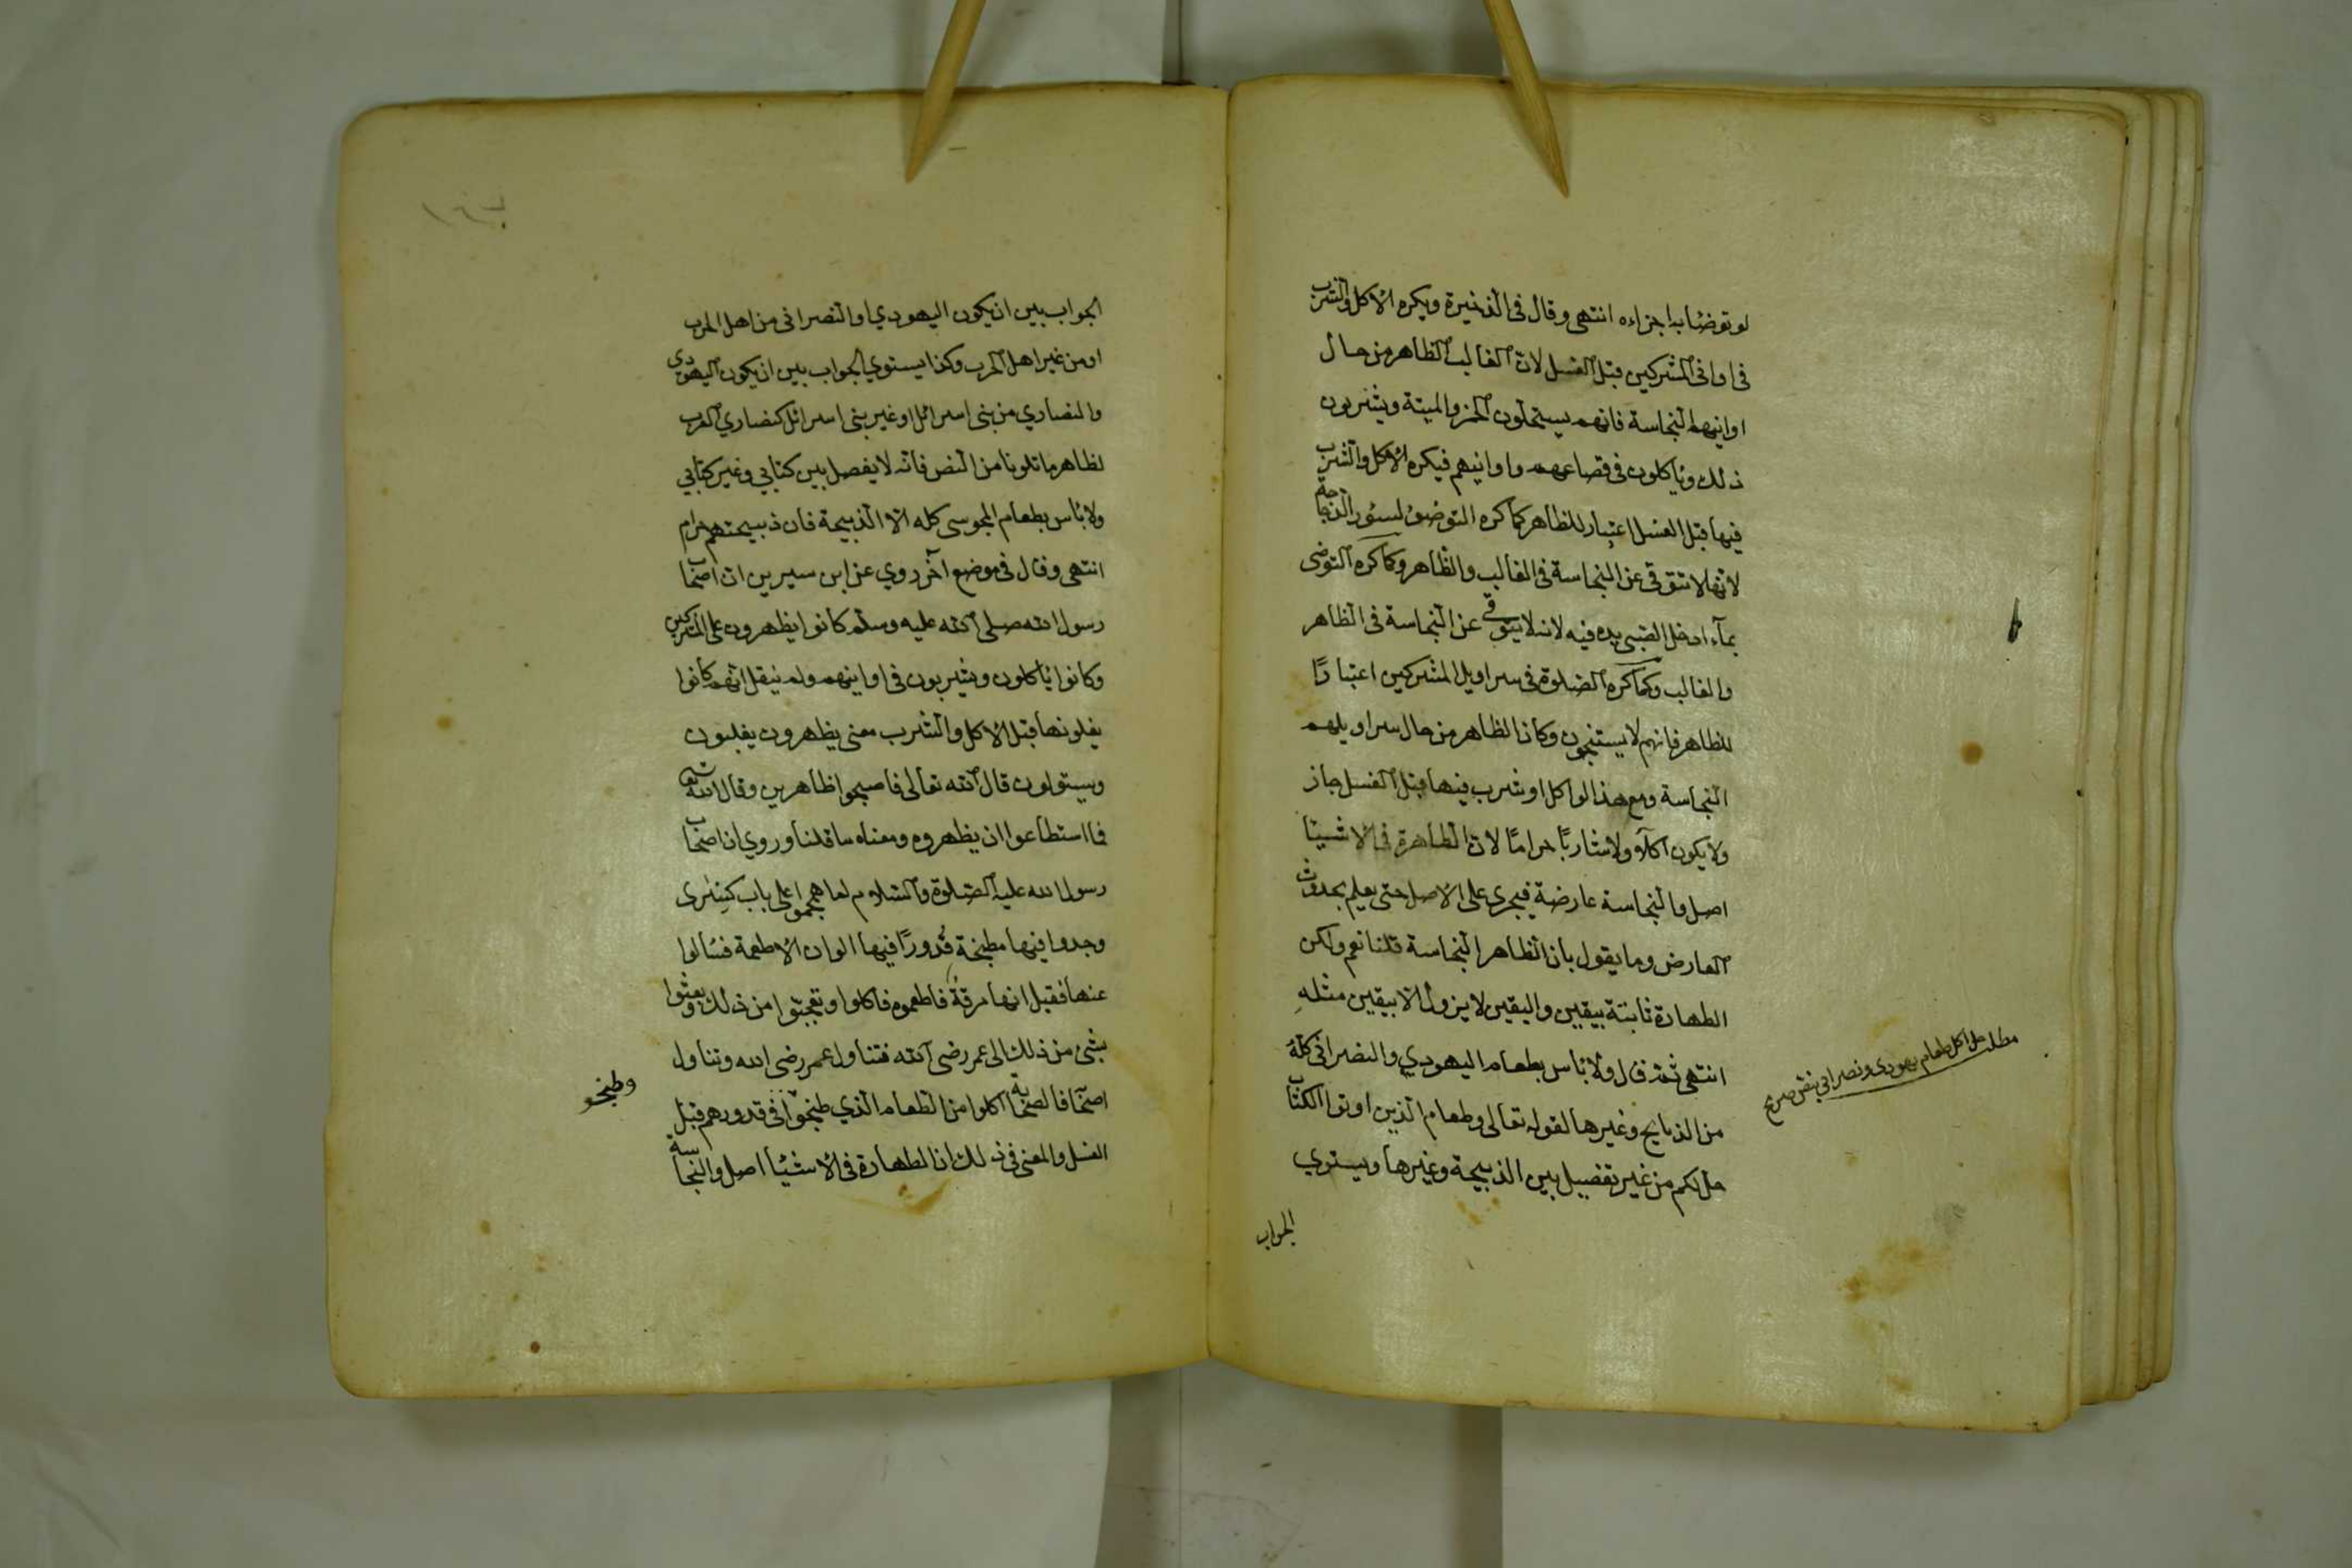 لو توضأ به اجزاءه انتهى وقال فى الذخيرة ويكره الاكل والشرب
فى اوانى المشركين قبل الغسل لان الغالب الظاهر من حال
اوانيهم النجاسة فانهم يستحلون الخمر والميتة ويشربون
ذلك وياكلون فى قصاعهم واوانيهم فيكره الاكل والشرب
فيها قبل الغسل اعتبار للظاهر كما كره التوضؤ لسئور الدجاجة
لانها لا تتوقى عن النجاسة فى الغالب والظاهر وكما كره التوضى
بمآء ادخل الصبى يده فيه لانه لا يتوقى عن النجاسة فى الظاهر
والغالب وكما كره الصلوة فى سراويل المشركين اعتبارًا
للظاهر فانهم لا يستنجون وكان الظاهر من حال سراويلهم
النجاسة ومع هذا لو اكل او شرب فيها قبل الغسل جاز
ولا يكون آكلاً ولا شاربًا حرامًا لان الطاهرة فى الاشيئا
اصل والنجاسة عارضة فيجرى على الاصل حتى يعلم بحدوث
العارض وما يقول بان الظاهر النجاسة قلنا نعم ولكن
الطهارة ثابتة بيقين واليقين لا يزول الا بيقين مثله
انتهى ثم قال ولا بأس بطعام اليهودي والنصرانى كله
من الذبايح وغيرها لقوله تعالى وطعام الذين اوتوا الكتاب
حل لكم من غير تفصيل بين الذبيحة وغيرها ويستوي
الجواب
مطلب حل اكل طعام يهودى ونصرانى بنص صريح
١٤٢
الجواب بين ان يكون اليهودي او النصرانى من اهل الحرب
او من غير اهل الحرب وكذا يستوي الجواب بين ان يكون اليهودى
والنصاري من بنى اسرائل او غير بنى اسرائل كنصاري العرب
لظاهر ما تلونا من النص فانه لا يفصل بين كتابي وغير كتابي
ولا بأس بطعام المجوسى كله الا الذبيحة فان ذبيحتهم حرام
انتهى وقال فى موضع آخر روي عن ابن سيرين ان اصحاب
رسول الله صلى الله عليه وسلم كانوا يظهرون على المشركين
وكانوا يأكلون ويشربون فى اوانيهم ولم ينقل انهم كانوا
يغلونها قبل الاكل والشرب معنى يظهرون يغلبون
ويستولون قال الله تعالى فاصبحوا ظاهرين وقال الله تعالى
فما استطاعوا ان يظهروه ومعناه ما قلنا وروي ان اصحاب
رسول الله عليه الصلوة والسلام لما هجموا على باب كسرى
وجدوا فيها مطبخة قُدورًا فيها الوان الاطعمة فسألوا
عنها فقيل انها مرقة فاطعموه فاكلوا وتعجبّوا من ذلك وبعثوا
بشئ من ذلك الى عمر رضى الله فتناول عمر رضى الله وتناول
اصحابه فالصحابة اكلوا من الطعام الذي طبخوا فى قدورهم قبل
الغسل والمعنى فى ذلك ان الطهارة فى الاشيئا اصل والنجاسة
وطبخو